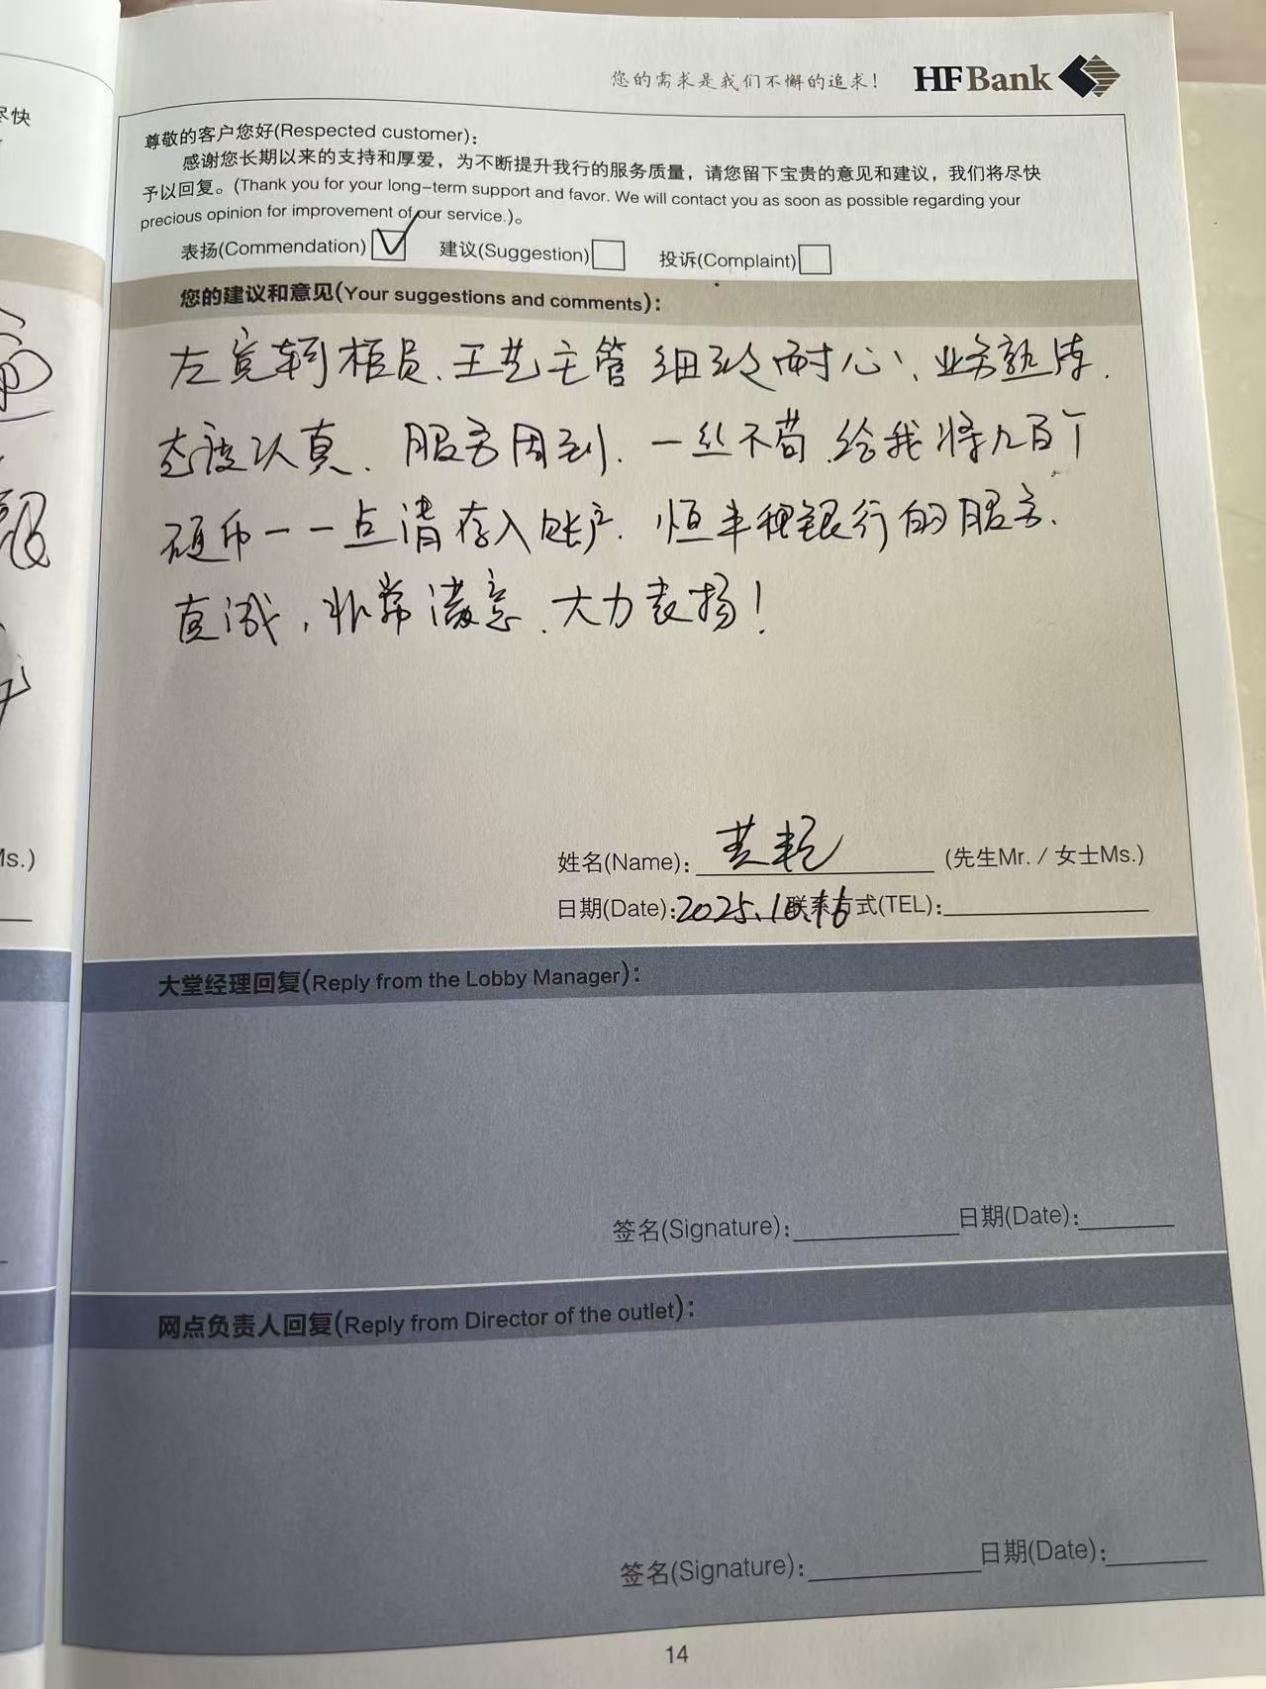 您的需求是我们不懈的追求！ HFBank
尊敬的客户您好(Respected customer)：
感谢您长期以来的支持和厚爱，为不断提升我行的服务质量，请您留下宝贵的意见和建议，我们将尽快
予以回复。(Thank you for your long-term support and favor. We will contact you as soon as possible regarding your
precious opinion for improvement of our service.)。
表扬(Commendation) 建议(Suggestion) 投诉(Complaint)
您的建议和意见(Your suggestions and comments)：
左宽 柜员、王艺主管 细致耐心、业务熟练.
态度认真、服务周到、一丝不苟、给我将九百个
硬币一一点清存入账户. 恒丰 银行的服务、
真诚，非常满意、大力表扬！
姓名(Name)： (先生Mr. / 女士Ms.)
日期(Date)：2025. 联系方式(TEL)：
大堂经理回复(Reply from the Lobby Manager)：
签名(Signature)： 日期(Date)：
网点负责人回复(Reply from Director of the outlet)：
签名(Signature)： 日期(Date)：
14
尽快
Ms.)